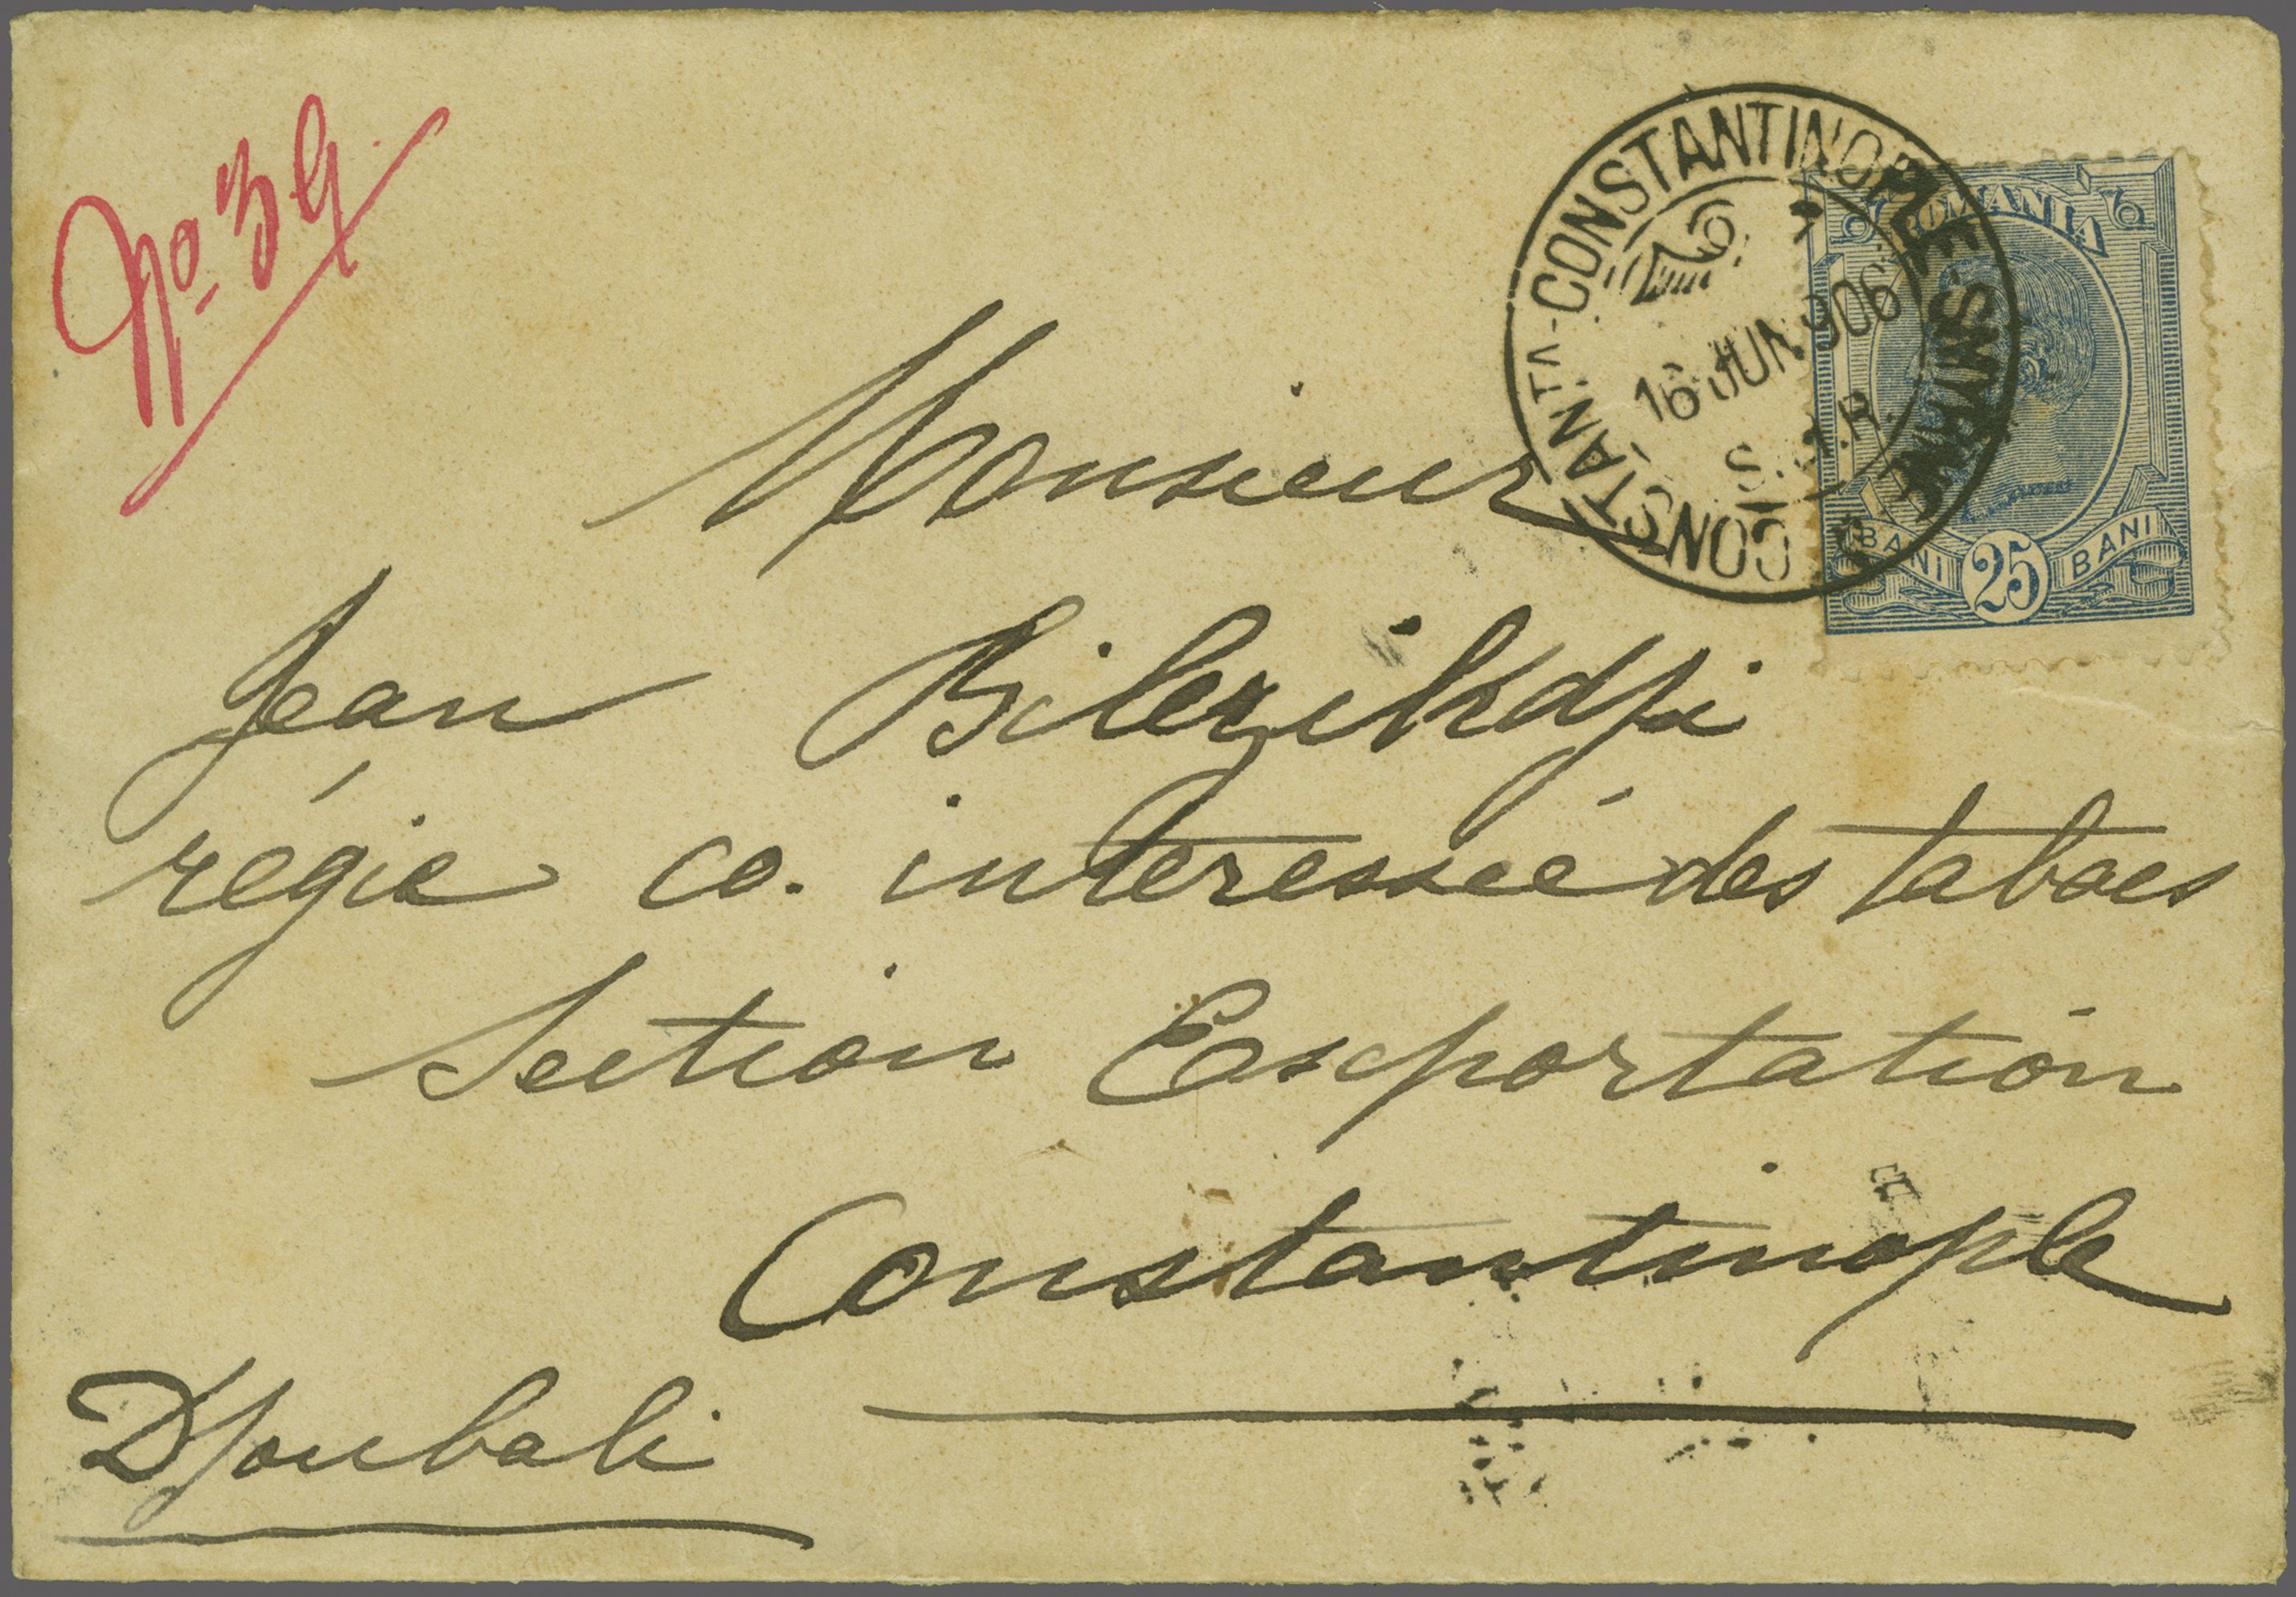 No 39
CONSTANTA-CONSTANTINOPLE-SMYRNE
16 JUN 906
S.M.R.
ROMANIA
BANI 25 BANI
Monsieur
Jean Bilezikdji
régie co. interessée des tabacs
Section Exportation
Constantinople
Djoubali